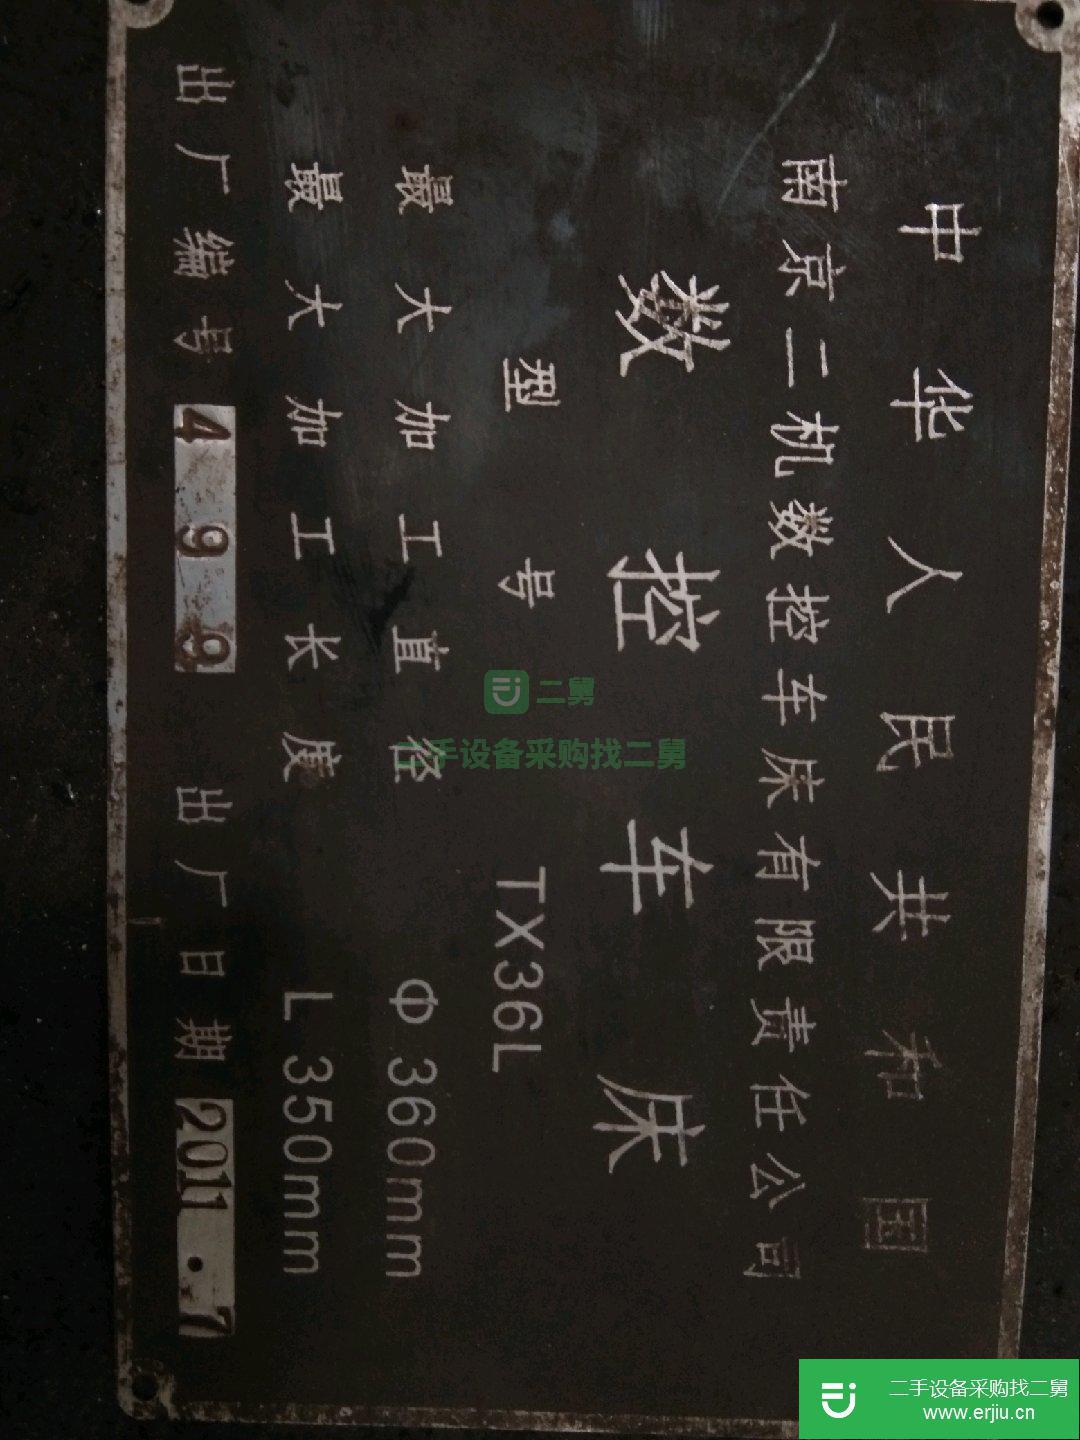 中华人民共和国
南京二机数控车床有限责任公司
数控车床
型号 TX36L
最大加工直径 Φ360mm
最大加工长度 L 350mm
出厂编号 499 出厂日期 2011.7
二舅
二手设备采购找二舅
二手设备采购找二舅
www.erjiu.cn